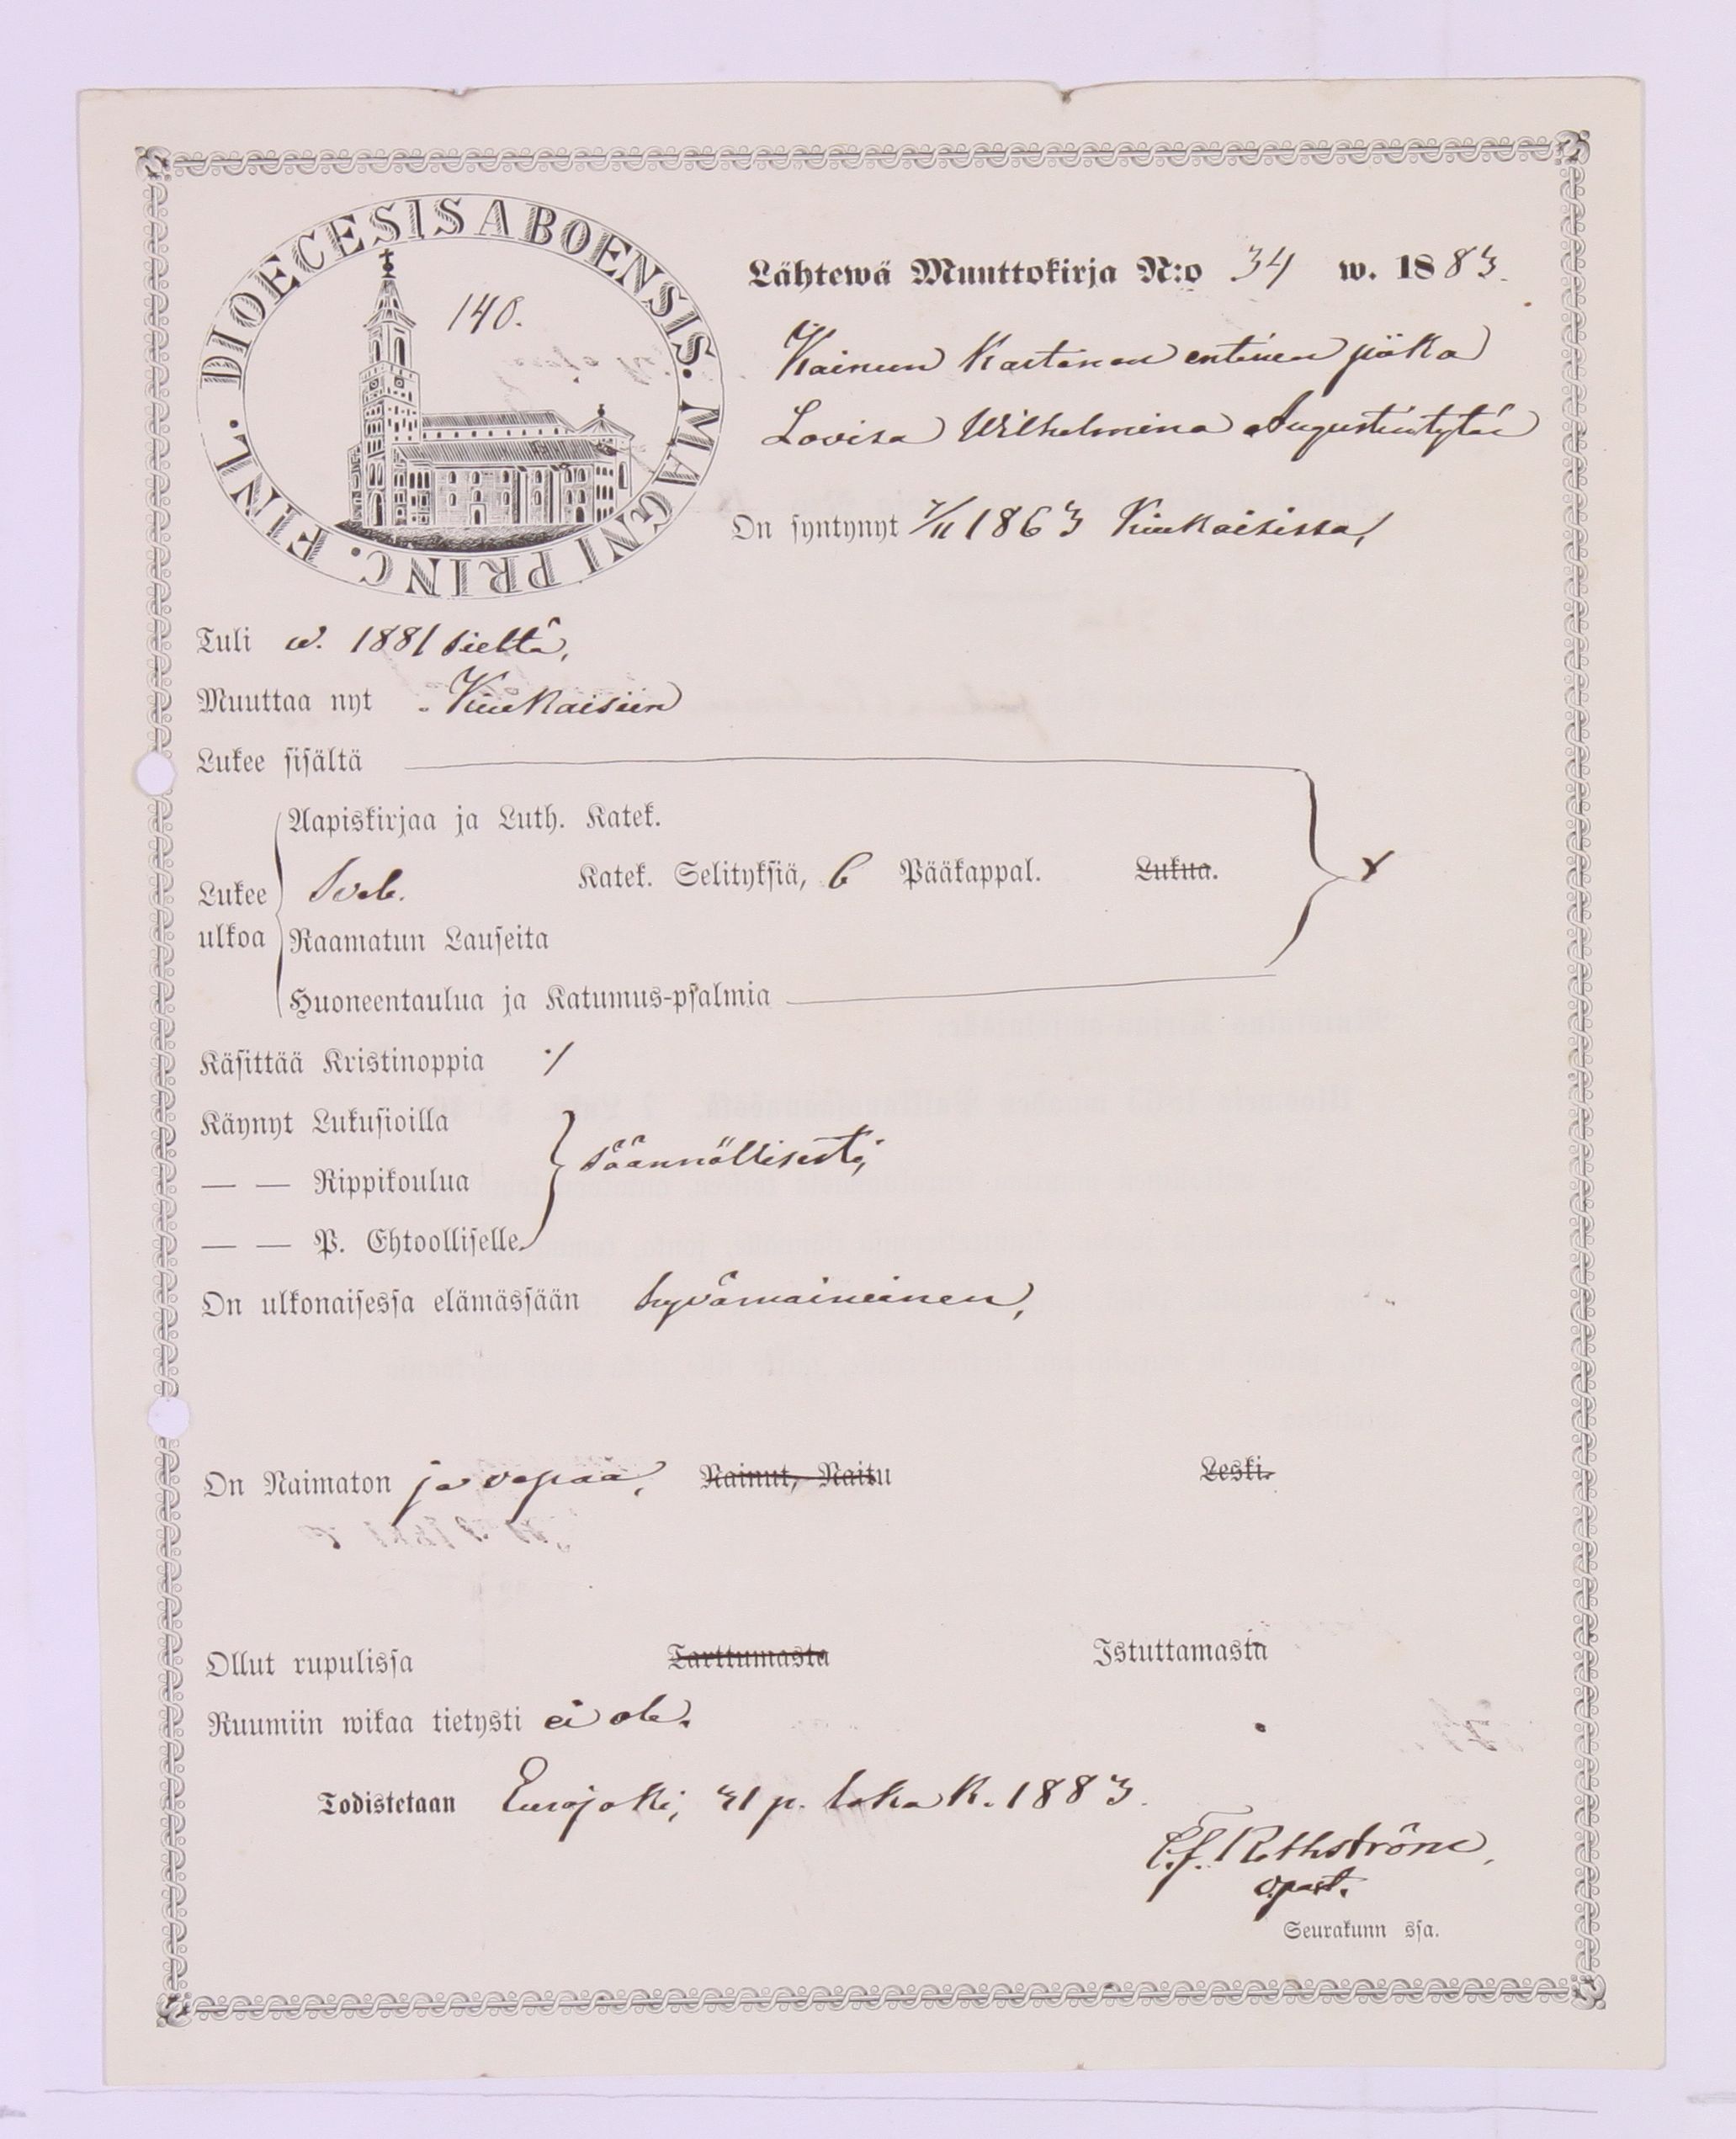 DIOECESIS ABOENSIS. MAGNI PRINC. FINL.
140.
Lähtewä Muuttokirja N:o 34 w. 1883.
Kainun Kartanon entinen piika
Lovisa Wilhelmina Augustintytär
On syntynyt 7/11 1863 Kiukaisissa,
Tuli w. 1881 sieltä,
Muuttaa nyt Kiukaisiin
Lukee sisältä
Aapiskirjaa ja Luth. Katek.
Lukee Sveb. Katek. Selityksiä, 6 Pääkappal. Lukua.
ulkoa Raamatun Lauseita
Huoneentaulua ja Katumus-psalmia
Käsittää Kristinoppia ·/
Käynyt Lukusioilla
— — Rippikoulua säännöllisesti,
— — P. Ehtoolliselle
On ulkonaisessa elämässään hyvämaineinen,
On Naimaton ja vapaa, Nainut, Naitu Leski.
Ollut rupulissa Tarttumasta Istuttamasta
Ruumiin wikaa tietysti ei ole.
Todistetaan Eurajoki, 31 p. lokak. 1883.
Rothström,
v.past.
Seurakunn ssa.